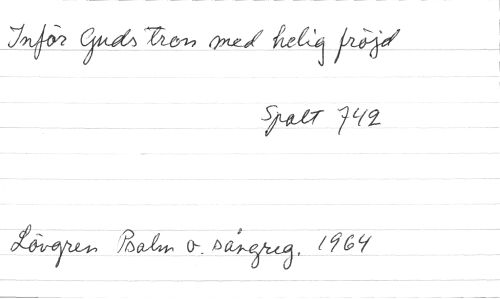 Inför Guds tron med helig fröjd
Spalt 742
Lövgren Psalm o. sångreg. 1964